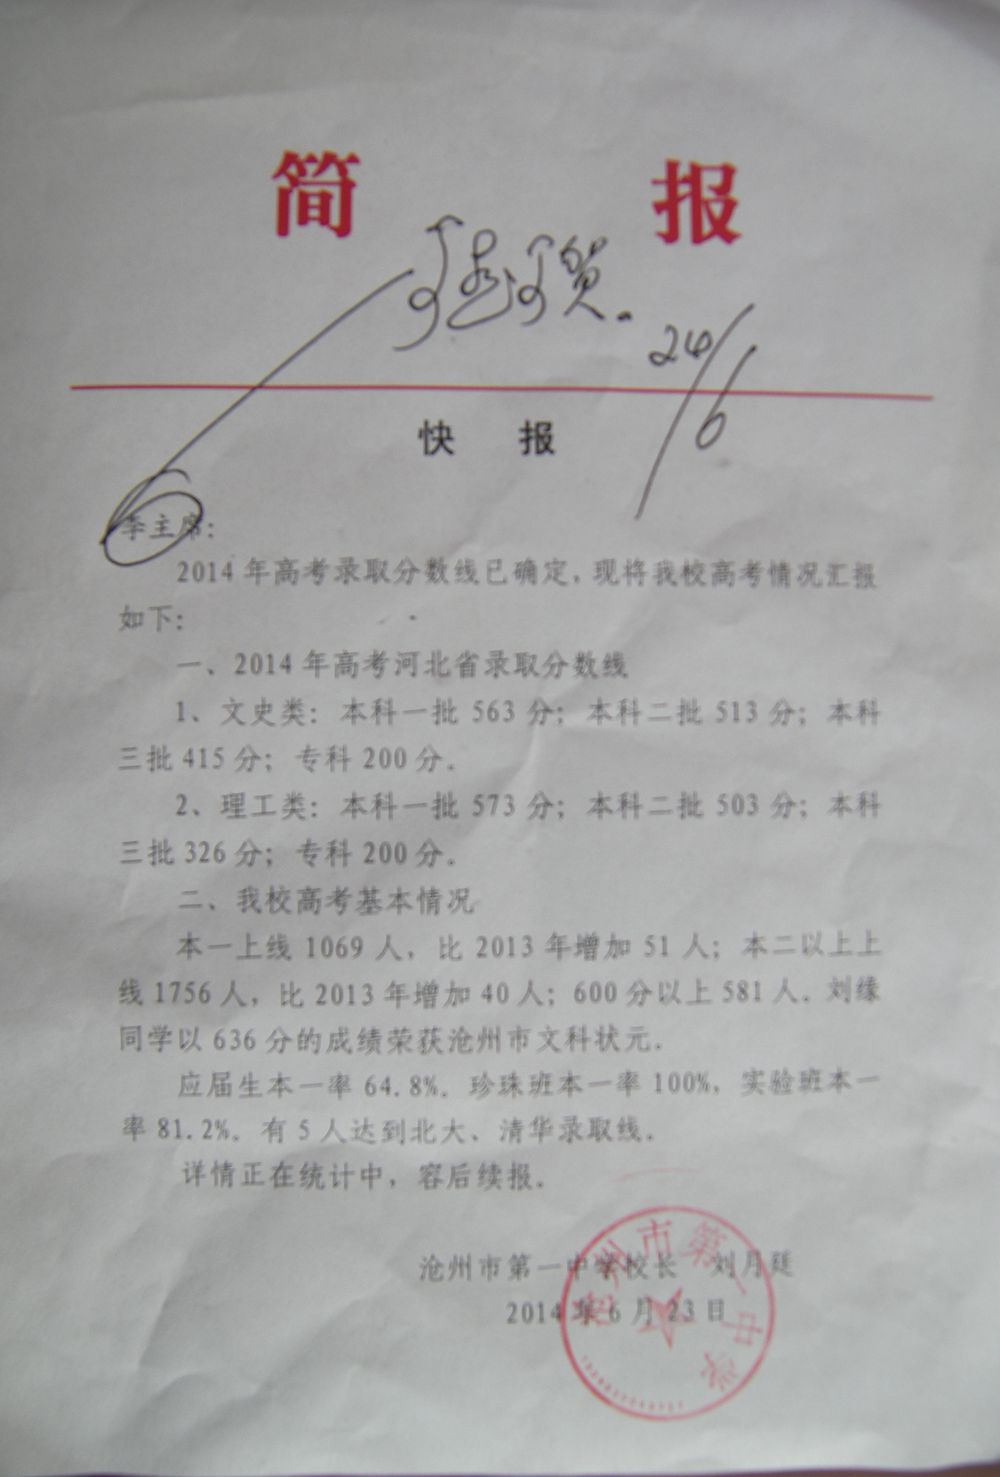 简 报
可喜可贺.
24/6
快 报
李主席:
2014年高考录取分数线已确定,现将我校高考情况汇报
如下:
一、2014年高考河北省录取分数线
1、文史类:本科一批563分;本科二批513分;本科
三批415分;专科200分.
2、理工类:本科一批573分;本科二批503分;本科
三批326分;专科200分.
二、我校高考基本情况
本一上线1069人,比2013年增加51人;本二以上上
线1756人,比2013年增加40人;600分以上581人.刘缘
同学以636分的成绩荣获沧州市文科状元.
应届生本一率64.8%.珍珠班本一率100%,实验班本一
率81.2%.有5人达到北大、清华录取线.
详情正在统计中,容后续报.
沧州市第一中学校长 刘月廷
2014年6月23日
沧州市第一中学